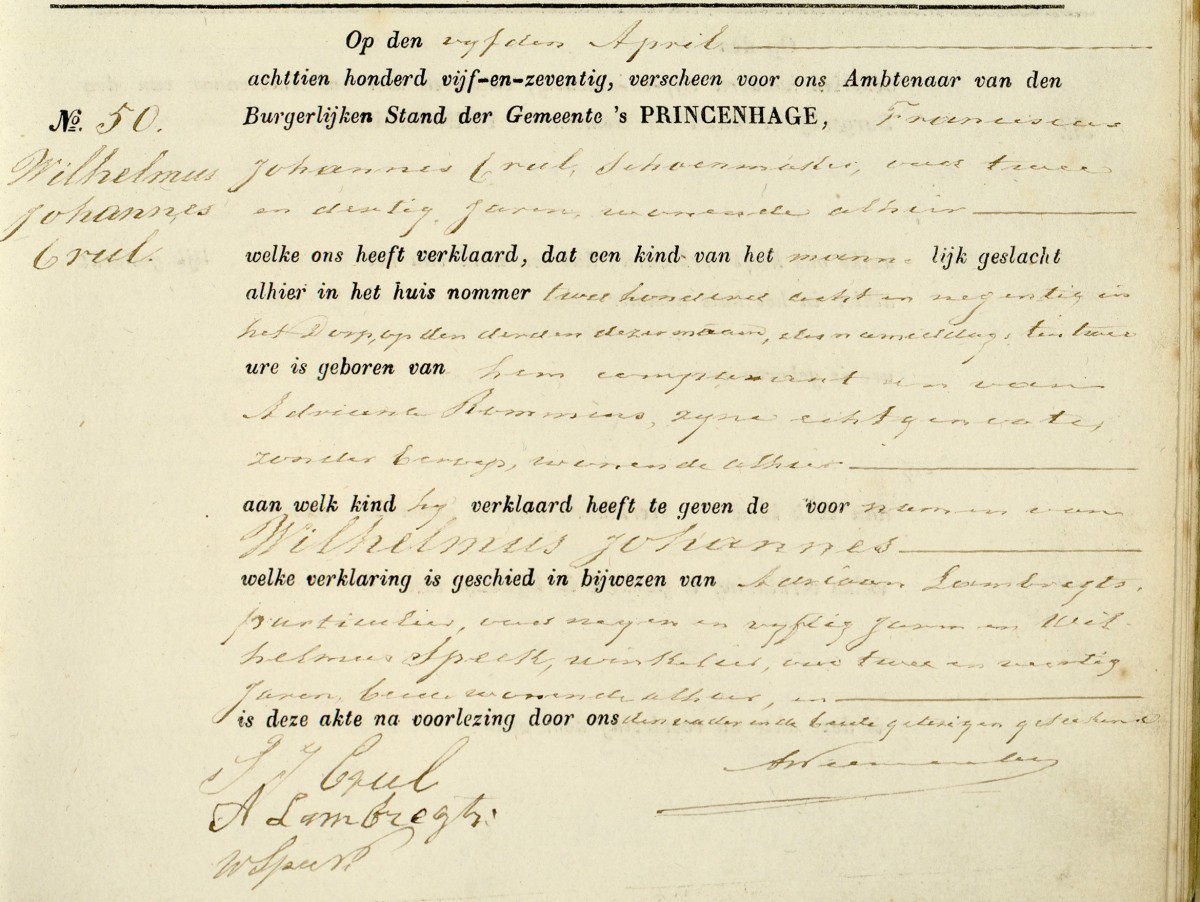 Op den vyfden April
achttien honderd vijf-en-zeventig, verscheen voor ons Ambtenaar van den
Burgerlijken Stand der Gemeente 's PRINCENHAGE, Franciscus
No. 50.
Wilhelmus
Johannes
Crul.
Johannes Crul, Schoenmaker, oud twee
en dertig Jaren, wonende alhier
welke ons heeft verklaard, dat een kind van het mann- lijk geslacht
alhier in het huis nommer twee honderd acht en negentig in
het Dorp, op den derden dezer maand, des namiddags ten twee
ure is geboren van hem comparant en van
Adriana Rommens, zyne echtgenoote,
zonder beroep, wonende alhier
aan welk kind hy verklaard heeft te geven de voor namen van
Wilhelmus Johannes
welke verklaring is geschied in bijwezen van Adriaan Lambregts,
particulier, oud negen en vyftig Jaren en Wil-
helmus Speek, winkelier, oud twee en veertig
Jaren, beide wonende alhier, en
is deze akte na voorlezing door ons den vader en de beide getuigen geteekend
F J Crul
A Lambregts
W Speek